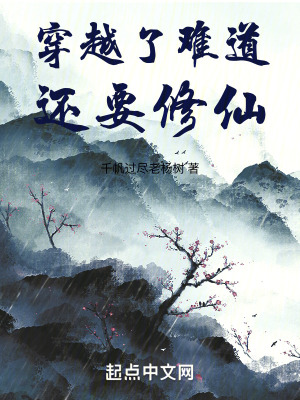 穿越了难道
还要修仙
千帆过尽老杨树 著
起点中文网